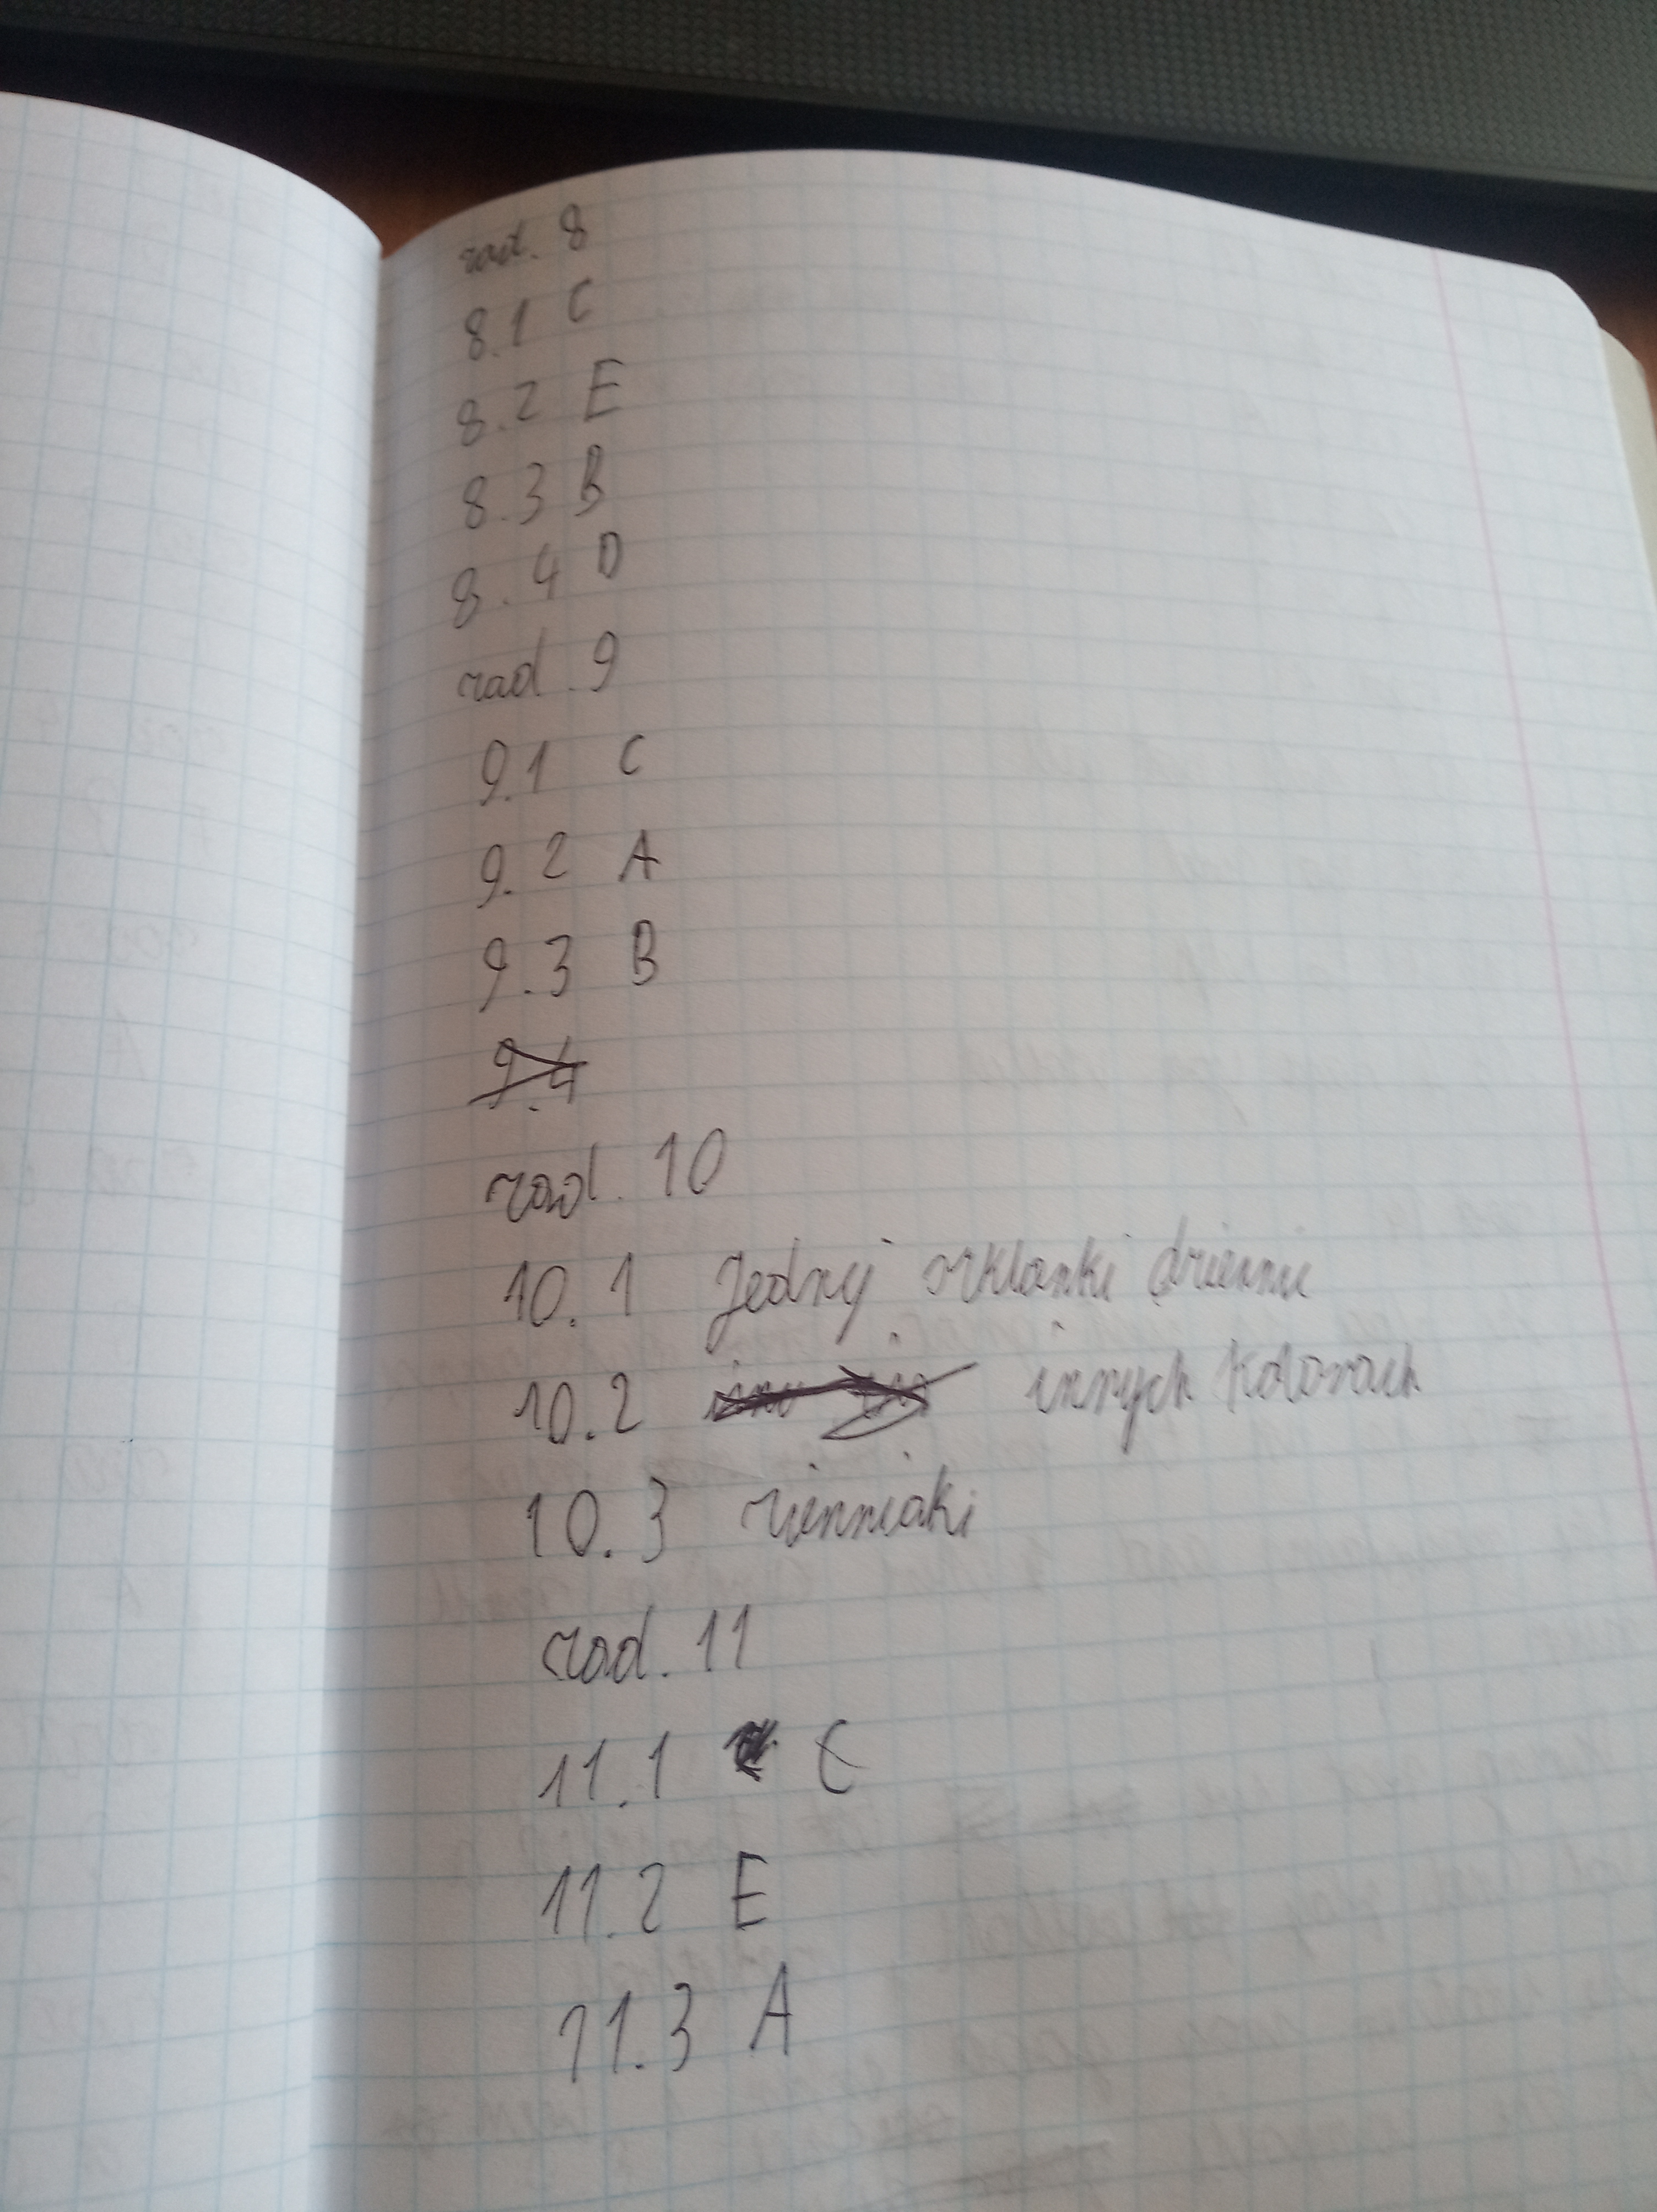 zad. 8
8.1 C
8.2 E
8.3 B
8.4 D
zad. 9
9.1 C
9.2 A
9.3 B
9.4
zad. 10
10.1 Jednej szklanki dziennie
10.2 innych kolorach
10.3 ziemniaki
zad. 11
11.1 C
11.2 E
11.3 A